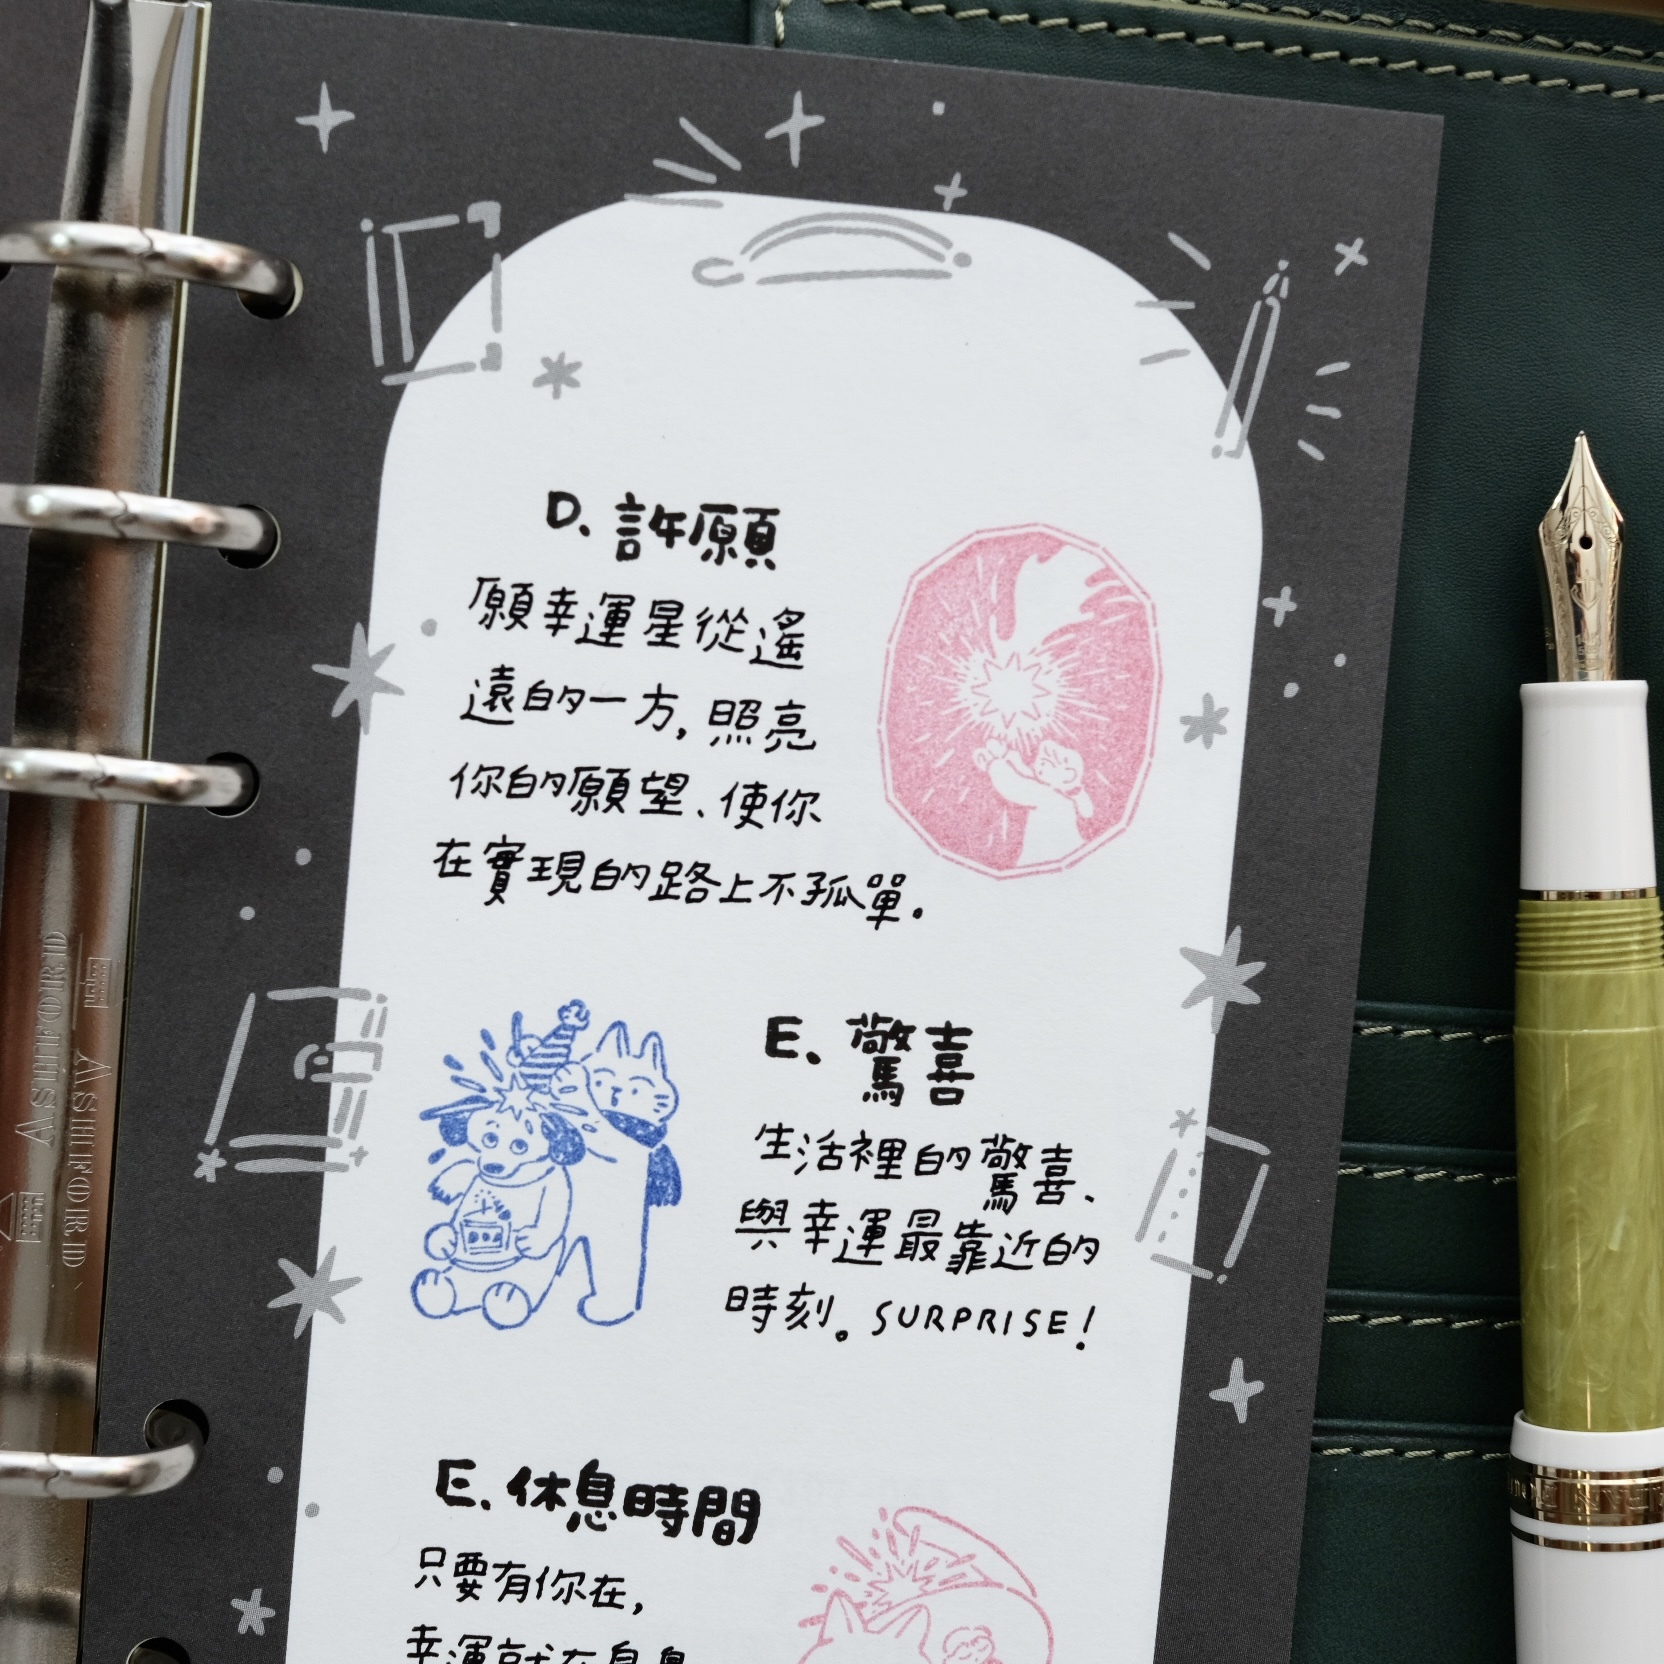 D. 許願
願幸運星從遙
遠的一方,照亮
你的願望、使你
在實現的路上不孤單.
E. 驚喜
生活裡的驚喜、
與幸運最靠近的
時刻。SURPRISE!
E. 休息時間
只要有你在,
幸運就在身邊
ASHFORD
ASHFORD